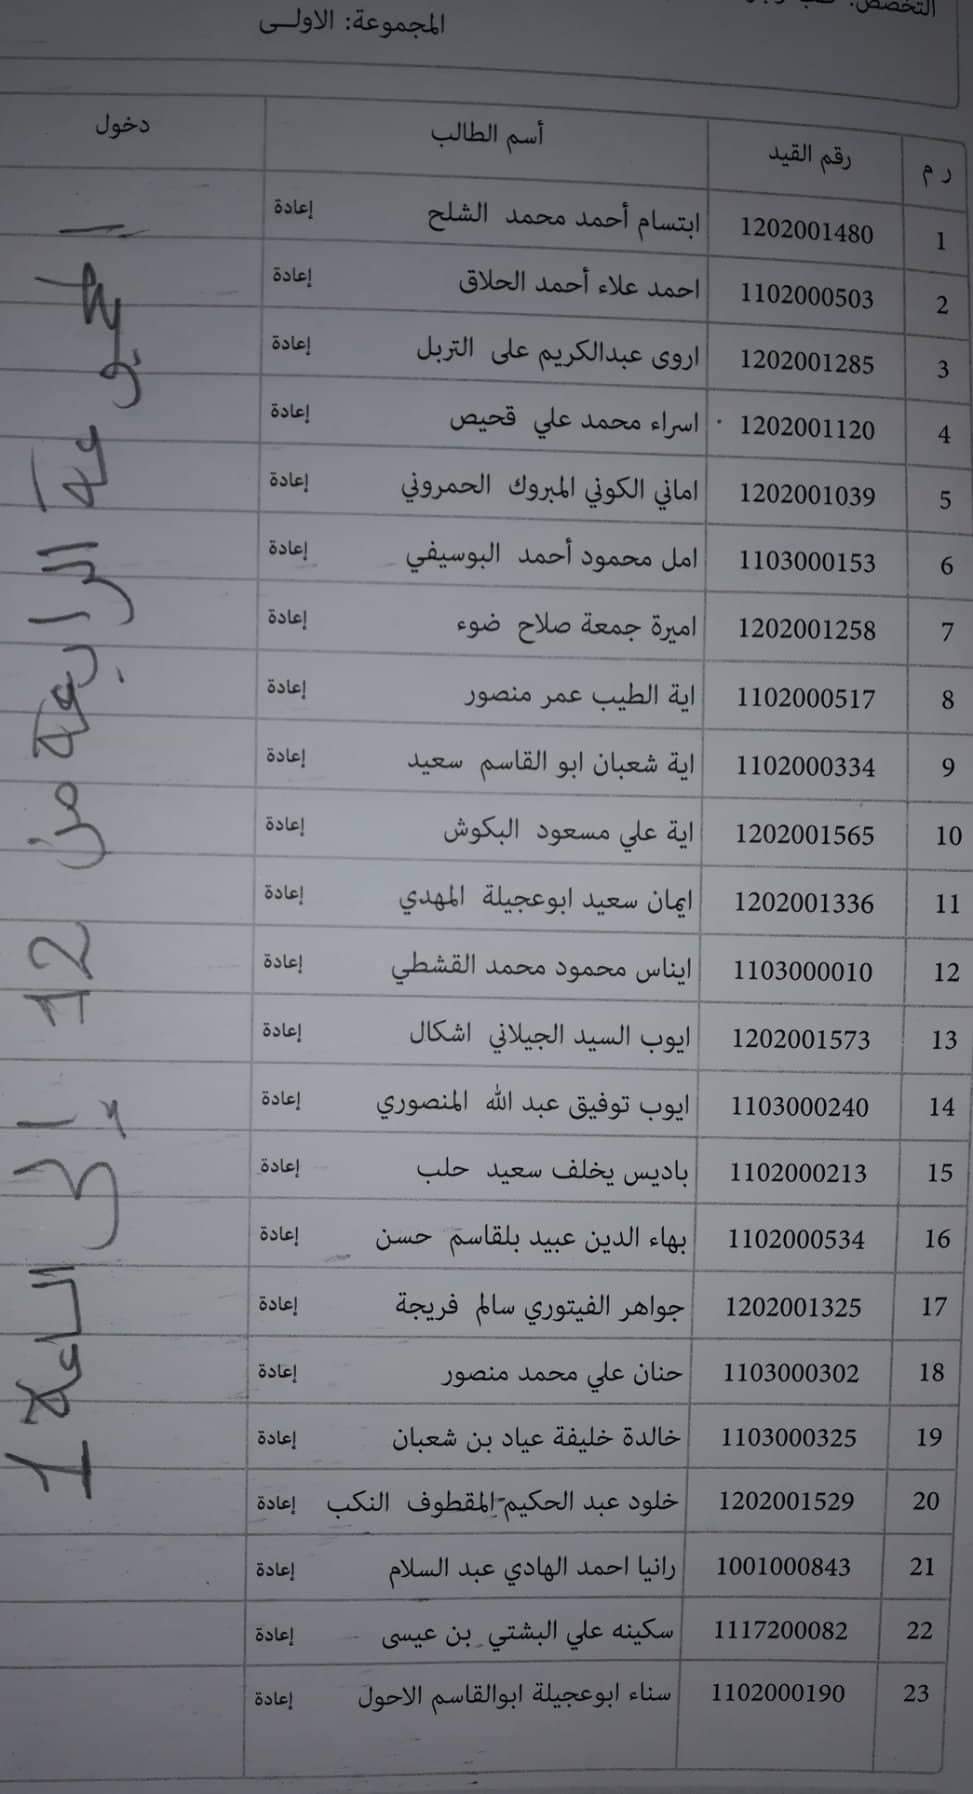 التخصص:
المجموعة: الاولى
ر م رقم القيد أسم الطالب دخول
1 1202001480 ابتسام أحمد محمد الشلح إعادة
2 1102000503 احمد علاء أحمد الحلاق إعادة
3 1202001285 اروى عبدالكريم على التربل إعادة
4 1202001120 اسراء محمد علي قحيص إعادة
5 1202001039 اماني الكوني المبروك الحمروني إعادة
6 1103000153 امل محمود أحمد البوسيفي إعادة
7 1202001258 اميرة جمعة صلاح ضوء إعادة
8 1102000517 اية الطيب عمر منصور إعادة
9 1102000334 اية شعبان ابو القاسم سعيد إعادة
10 1202001565 اية علي مسعود البكوش إعادة
11 1202001336 ايمان سعيد ابوعجيلة المهدي إعادة
12 1103000010 ايناس محمود محمد القشطي إعادة
13 1202001573 ايوب السيد الجيلاني اشكال إعادة
14 1103000240 ايوب توفيق عبد الله المنصوري إعادة
15 1102000213 باديس يخلف سعيد حلب إعادة
16 1102000534 بهاء الدين عبيد بلقاسم حسن إعادة
17 1202001325 جواهر الفيتوري سالم فريجة إعادة
18 1103000302 حنان علي محمد منصور إعادة
19 1103000325 خالدة خليفة عياد بن شعبان إعادة
20 1202001529 خلود عبد الحكيم المقطوف النكب إعادة
21 1001000843 رانيا احمد الهادي عبد السلام إعادة
22 1117200082 سكينه علي البشتي بن عيسى إعادة
23 1102000190 سناء ابوعجيلة ابوالقاسم الاحول إعادة
المجموعة الرابعة من 12 إلى الساعة 1